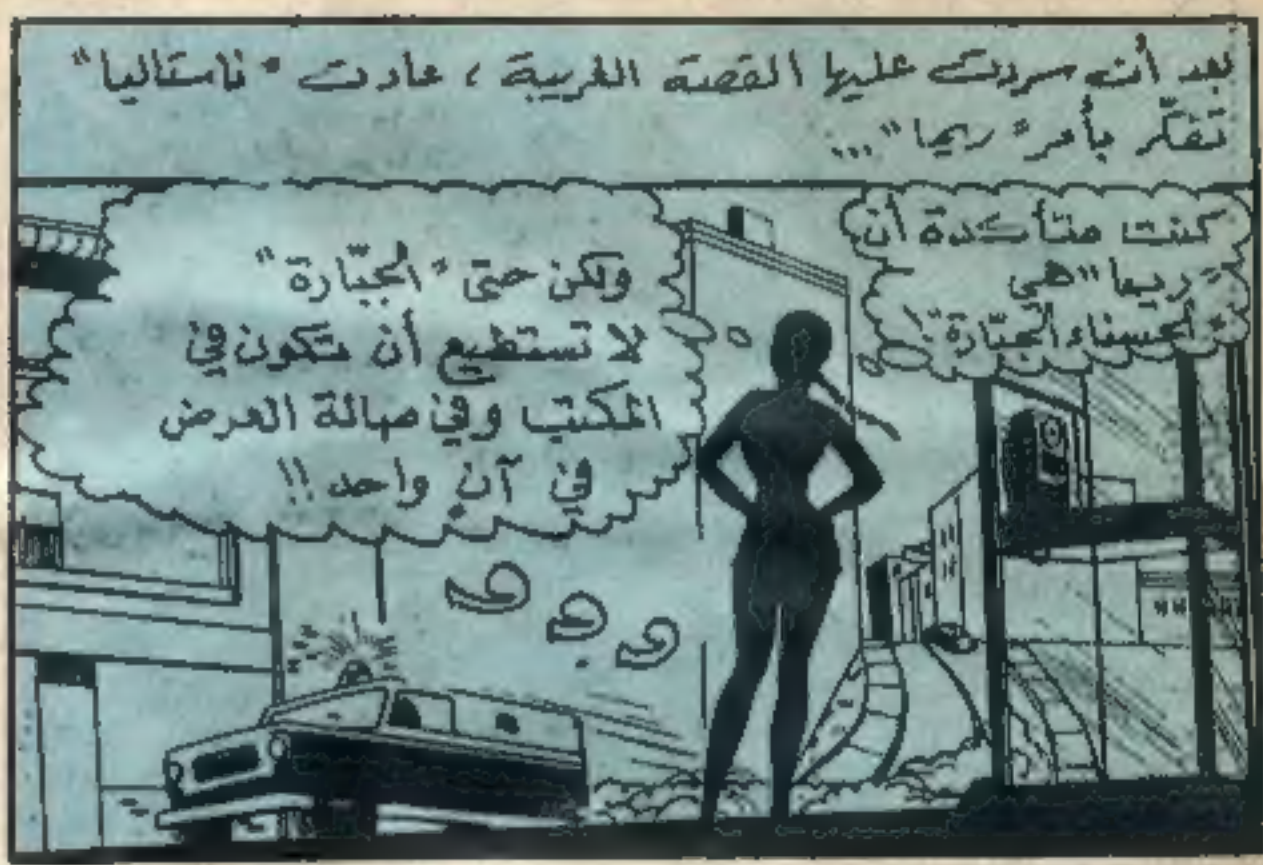 بعد أن سردت عليها القصة الغريبة ، عادت "ناستاليا"
تفكّر بأمر "ريما" ...
كنت متأكدة أن
"ريما" هي
"الحسناء الجبّارة" !
ولكن حتى "الجبّارة"
لا تستطيع أن تكون في
المكتب وفي صالة العرض
في آنٍ واحد !!
و و و